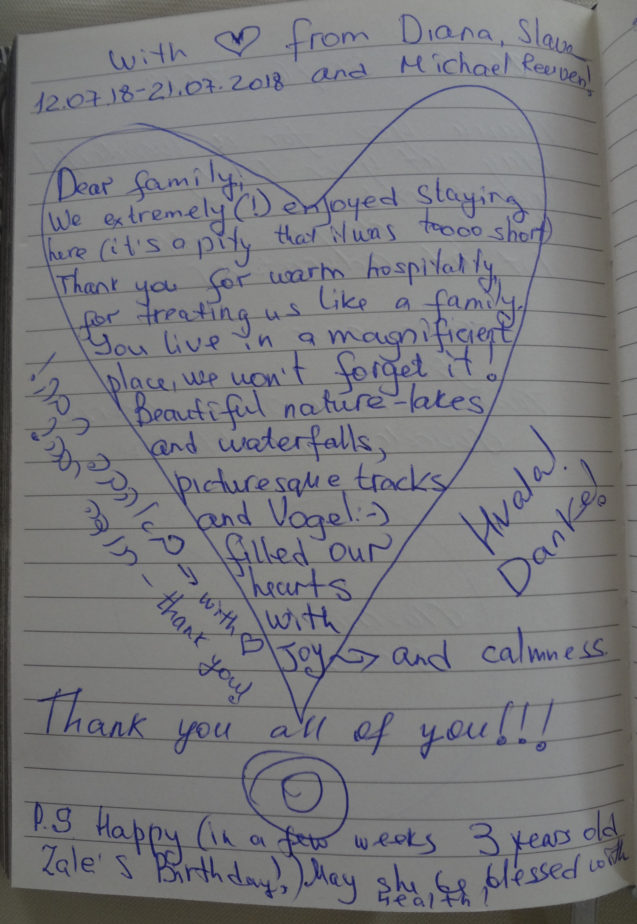 with ♡ from Diana, Slava
12.07.18-21.07.2018 and Michael Reuven!
Dear family,
We extremely (!) enjoyed staying
here (it's a pity that it was toooo short)
Thank you for warm hospitality,
for treating us like a family.
You live in a magnificient
place, we won't forget it!
Beautiful nature-lakes
and waterfalls,
picturesque tracks
and Vogel :-)
filled our
hearts
with
Joy → and calmness.
→ with ♡
- thank you!
Hvala!
Danke!
Thank you all of you!!!
P.S Happy (in a few weeks 3 years old
Zale's Birthday!,) May she be blessed with
health!